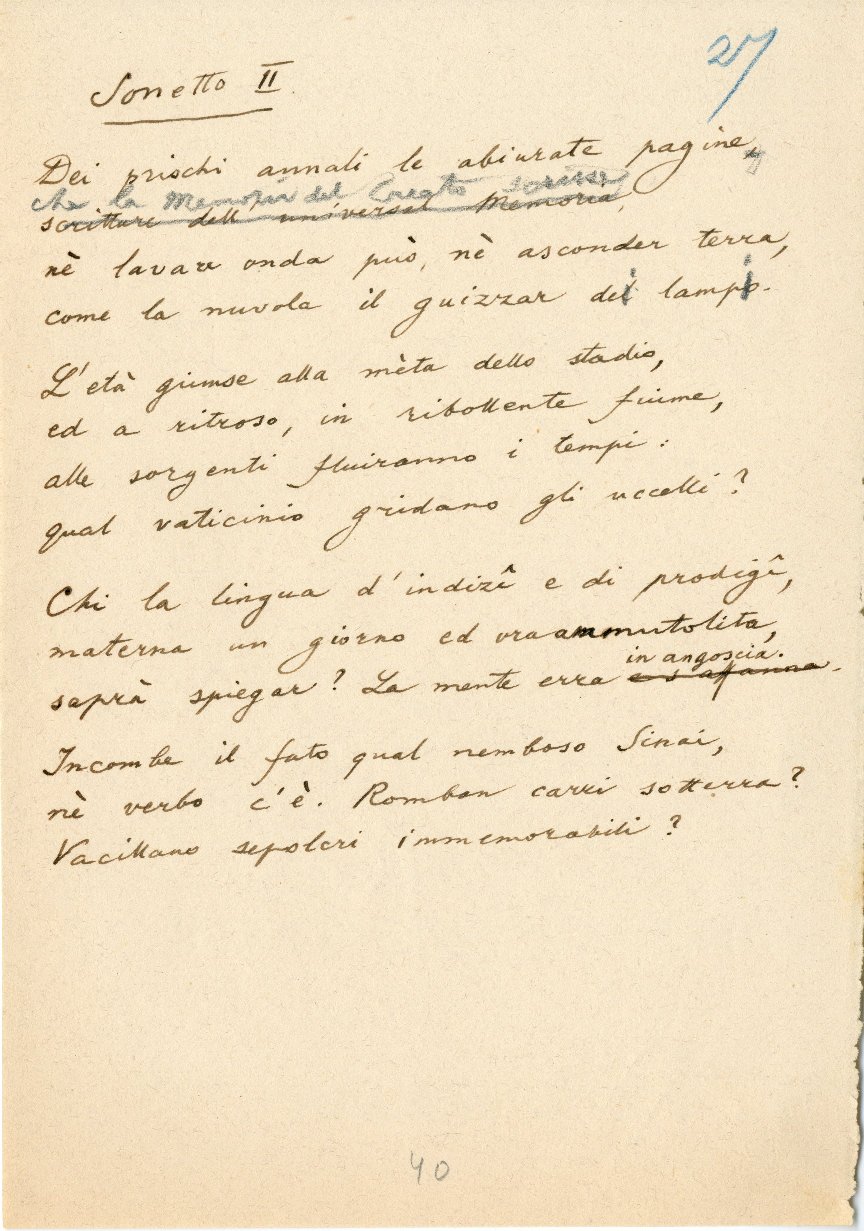 27
Sonetto II.
Dei prischi annali le abiurate pagine,
che la Memoria del Creato scrisse
scritture dell' universal Memoria,
nè lavare onda può, nè asconder terra,
come la nuvola il guizzar dei lampi.
L'età giunse alla mèta dello stadio,
ed a ritroso, in ribollente fiume,
alle sorgenti fluiranno i tempi:
qual vaticinio gridano gli uccelli?
Chi la lingua d'indizî e di prodigî,
materna un giorno ed ora ammutolita,
in angoscia.
saprà spiegar? La mente erra e s'affanna.
Incombe il fato qual nemboso Sinai,
nè verbo c'è. Romban carri sotterra?
Vacillano sepolcri immemorabili?
40